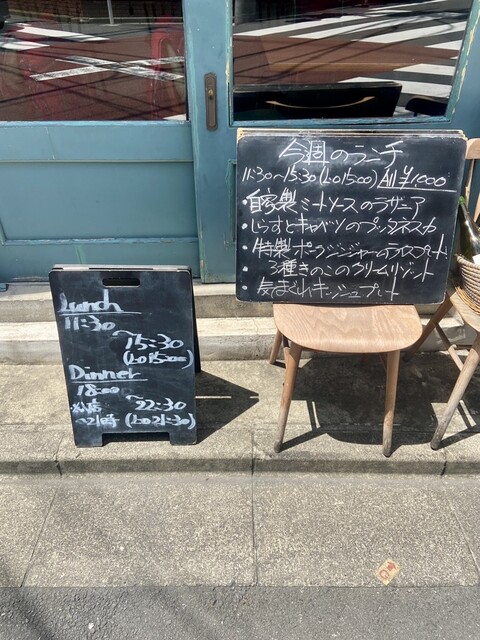 Lunch
11:30
~15:30
(Lo 15:00)
Dinner
18:00
~22:30
~21時 (Lo 21:30)
今週のランチ
11:30~15:30 (Lo 15:00) All ¥1,000
・自家製ミートソースのラザニア
・しらすとキャベツのプッタネスカ
・特製ポークジンジャーのライスプレート
・3種きのこのクリームリゾット
・気まぐれキッシュプレート